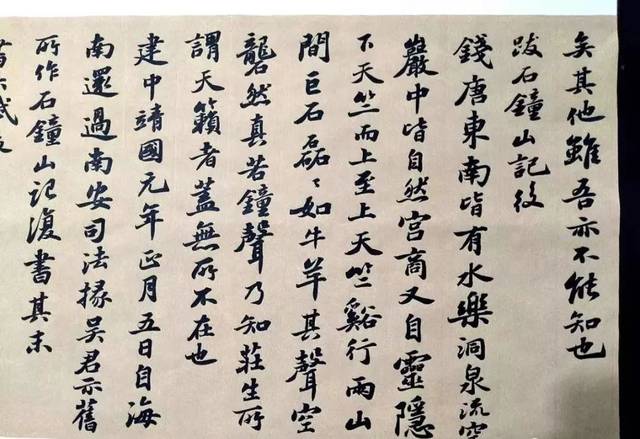 矣其他雖吾亦不能知也
跋石鐘山記後
錢唐東南皆有水樂洞泉流空
巖中皆自然宮商又自靈隱
下天竺而上至上天竺谿行兩山
間巨石磊〻如牛羊其聲空
礱然真若鐘聲乃知莊生所
謂天籟者蓋無所不在也
建中靖國元年正月五日自海
南還過南安司法掾吳君示舊
所作石鐘山記復書其末